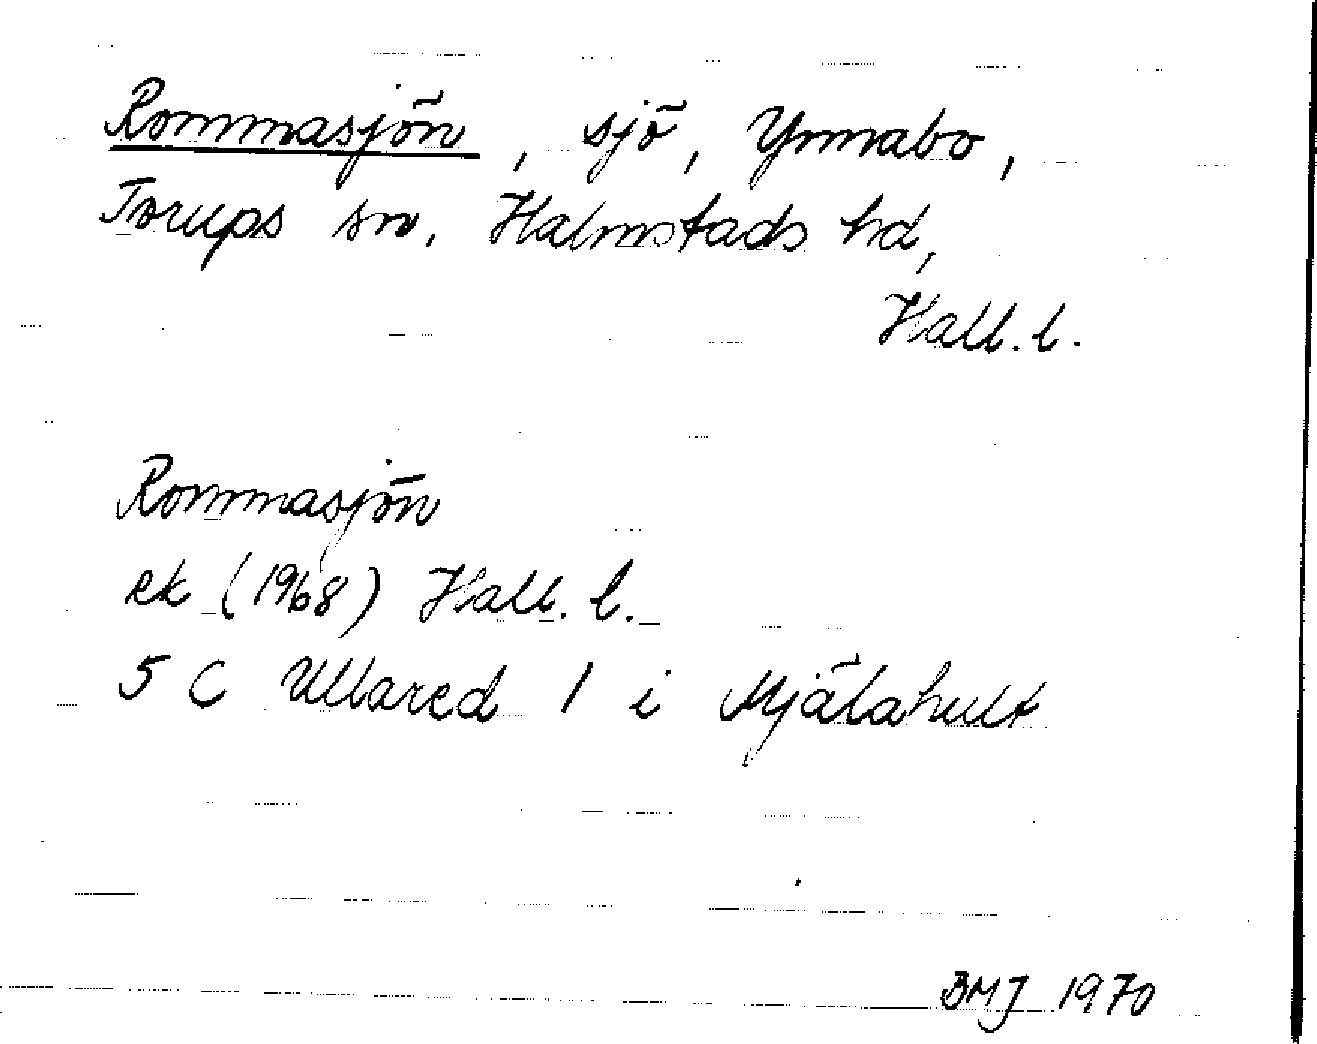 Rommasjön, sjö, Ynnabo,
Torups sn, Halmstads hd,
Hall. l.
Rommasjön
ek (1968) Hall. l.
5 C Ullared 1 i Mjälahult
BMJ 1970